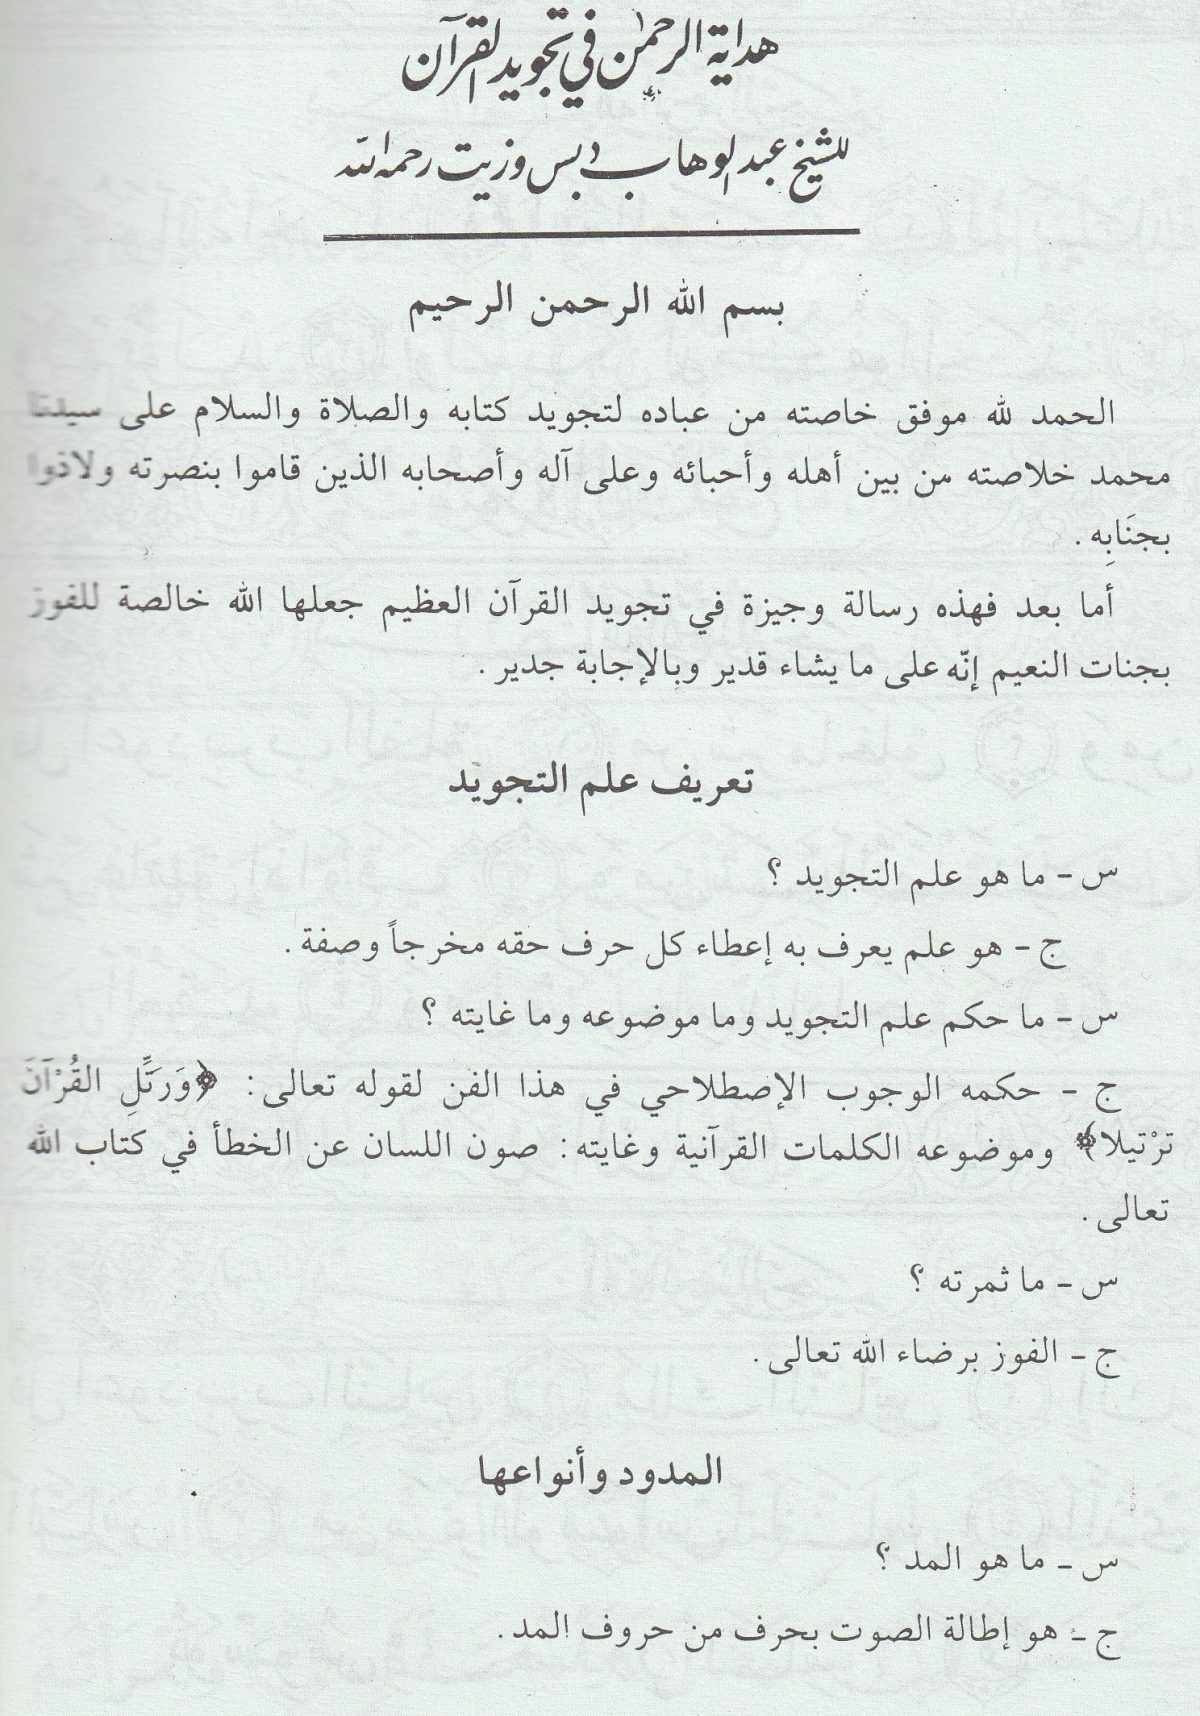 هداية الرحمٰن في تجويد القرآن
للشيخ عبد الوهاب دبس وزيت رحمه الله
بسم الله الرحمن الرحيم
الحمد لله موفق خاصته من عباده لتجويد كتابه والصلاة والسلام على سيدنا
محمد خلاصته من بين أهله وأحبائه وعلى آله وأصحابه الذين قاموا بنصرته ولاذوا
بجنَابِه .
أما بعد فهذه رسالة وجيزة في تجويد القرآن العظيم جعلها الله خالصة للفوز
بجنات النعيم إنّه على ما يشاء قدير وبالإجابة جدير .
تعريف علم التجويد
س - ما هو علم التجويد ؟
ج - هو علم يعرف به إعطاء كل حرف حقه مخرجاً وصفة .
س - ما حكم علم التجويد وما موضوعه وما غايته ؟
ج - حكمه الوجوب الإصطلاحي في هذا الفن لقوله تعالى: ﴿وَرَتِّلِ القُرْآنَ
ترْتيلا﴾ وموضوعه الكلمات القرآنية وغايته: صون اللسان عن الخطأ في كتاب الله
تعالى .
س - ما ثمرته ؟
ج - الفوز برضاء الله تعالى .
المدود وأنواعها
س - ما هو المد ؟
ج - هو إطالة الصوت بحرف من حروف المد .